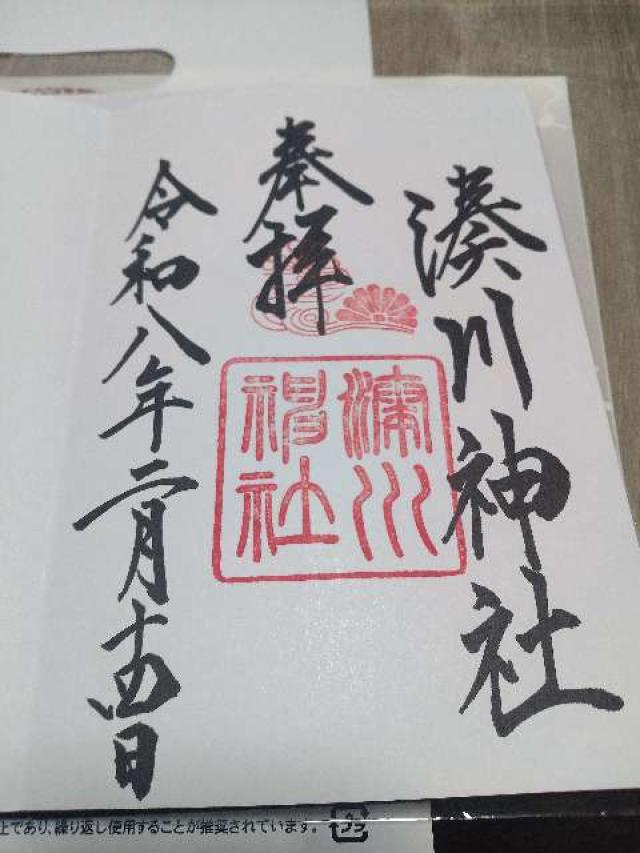 湊川神社
奉拝
湊川
神社
令和八年二月十四日
上であり、繰り返し使用することが推奨されています。
プラ